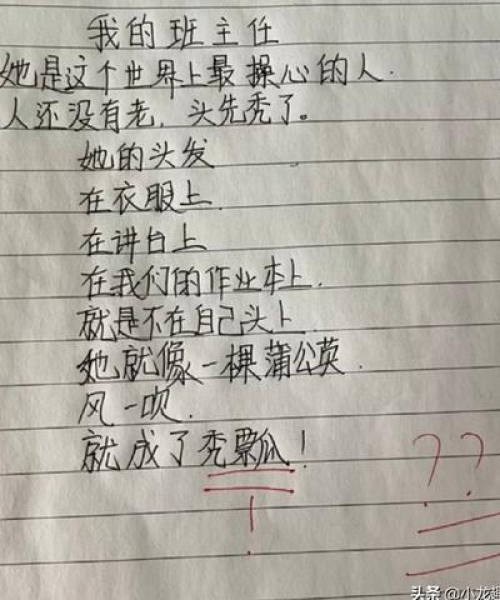 我的班主任
她是这个世界上最操心的人.
人还没有老,头先秃了。
她的头发
在衣服上.
在讲台上
在我们的作业本上.
就是不在自己头上
她就像一棵蒲公英.
风一吹.
就成了秃票瓜!
! ??
头条 @小龙